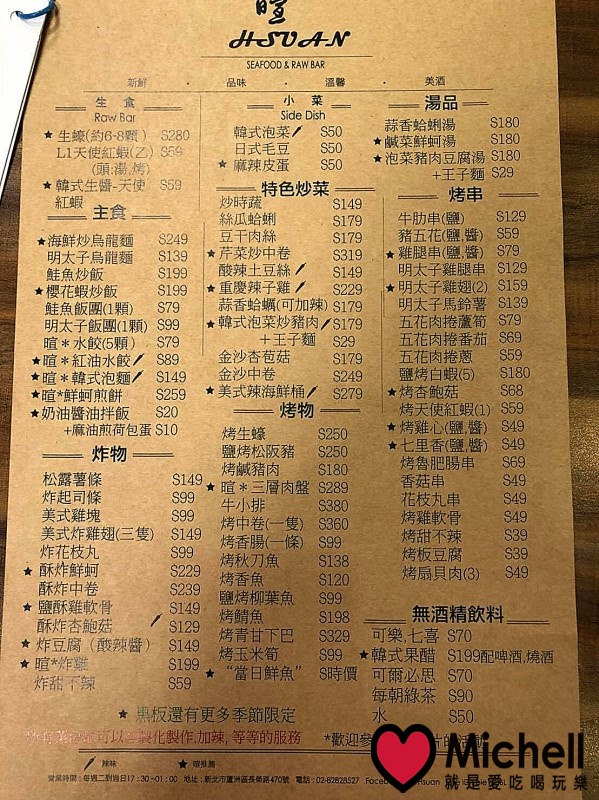 暄
HSUAN
SEAFOOD & RAW BAR
新鮮 · 品味 · 溫馨 · 美酒
生 食
Raw Bar
★生蠔(約6-8顆) S280
L1天使紅蝦(乙) S59
(頭:湯,烤)
★韓式生醬-天使紅蝦 S59
主食
★海鮮炒烏龍麵 S249
明太子烏龍麵 S139
鮭魚炒飯 S199
★櫻花蝦炒飯 S199
鮭魚飯團(1顆) S79
明太子飯團(1顆) S99
暄*水餃(5顆) S79
★暄*紅油水餃 S89
★暄*韓式泡麵 S149
★暄*鮮蚵煎餅 S259
★奶油醬油拌飯 S20
+麻油煎荷包蛋 S10
炸物
松露薯條 S149
炸起司條 S99
美式雞塊 S99
美式炸雞翅(三隻) S149
炸花枝丸 S99
★酥炸鮮蚵 S229
酥炸中卷 S239
★鹽酥雞軟骨 S149
酥炸杏鮑菇 S129
★炸豆腐(酸辣醬) S149
★暄*炸雞 S199
炸甜不辣 S59
小 菜
Side Dish
韓式泡菜 S50
日式毛豆 S50
★麻辣皮蛋 S50
特色炒菜
炒時蔬 S149
絲瓜蛤蜊 S179
豆干肉絲 S179
★芹菜炒中卷 S319
酸辣土豆絲 S149
★重慶辣子雞 S229
蒜香蛤蠣(可加辣) S179
★韓式泡菜炒豬肉 S179
+王子麵 S29
金沙杏苞菇 S179
金沙中卷 S249
★美式辣海鮮桶 S279
烤物
烤生蠔 S250
鹽烤松阪豬 S250
烤鹹豬肉 S180
★暄*三層肉盤 S289
牛小排 S380
烤中卷(一隻) S360
烤香腸(一條) S99
烤秋刀魚 S138
烤香魚 S120
鹽烤柳葉魚 S99
烤鯖魚 S198
烤青甘下巴 S329
烤玉米筍 S99
★"當日鮮魚" S時價
湯品
蒜香蛤蜊湯 S180
★鹹菜鮮蚵湯 S180
★泡菜豬肉豆腐湯 S180
+王子麵 S29
烤串
牛肋串(鹽) S129
豬五花(鹽,醬) S59
★雞腿串(鹽,醬) S79
明太子雞腿串 S129
★明太子雞翅(2) S159
明太子馬鈴薯 S139
五花肉捲蘆筍 S79
五花肉捲番茄 S69
五花肉捲蔥 S59
鹽烤白蝦(5) S180
★烤杏鮑菇 S68
烤天使紅蝦(1) S59
★烤雞心(鹽,醬) S49
★七里香(鹽,醬) S49
烤魯肥腸串 S69
香菇串 S49
花枝丸串 S49
烤雞軟骨 S49
烤甜不辣 S39
烤板豆腐 S39
烤扇貝肉(3) S49
無酒精飲料
可樂,七喜 S70
★韓式果醋 S199配啤酒,燒酒
可爾必思 S70
每朝綠茶 S90
水 S50
★黑板還有更多季節限定
可以客製化製作,加辣,等等的服務
*歡迎參
辣味 ★暄推薦
營業時間:每週二到週日17:30~01:00 地址:新北市蘆洲區長榮路470號 電話:02-82828527
Michell
就是愛吃喝玩樂